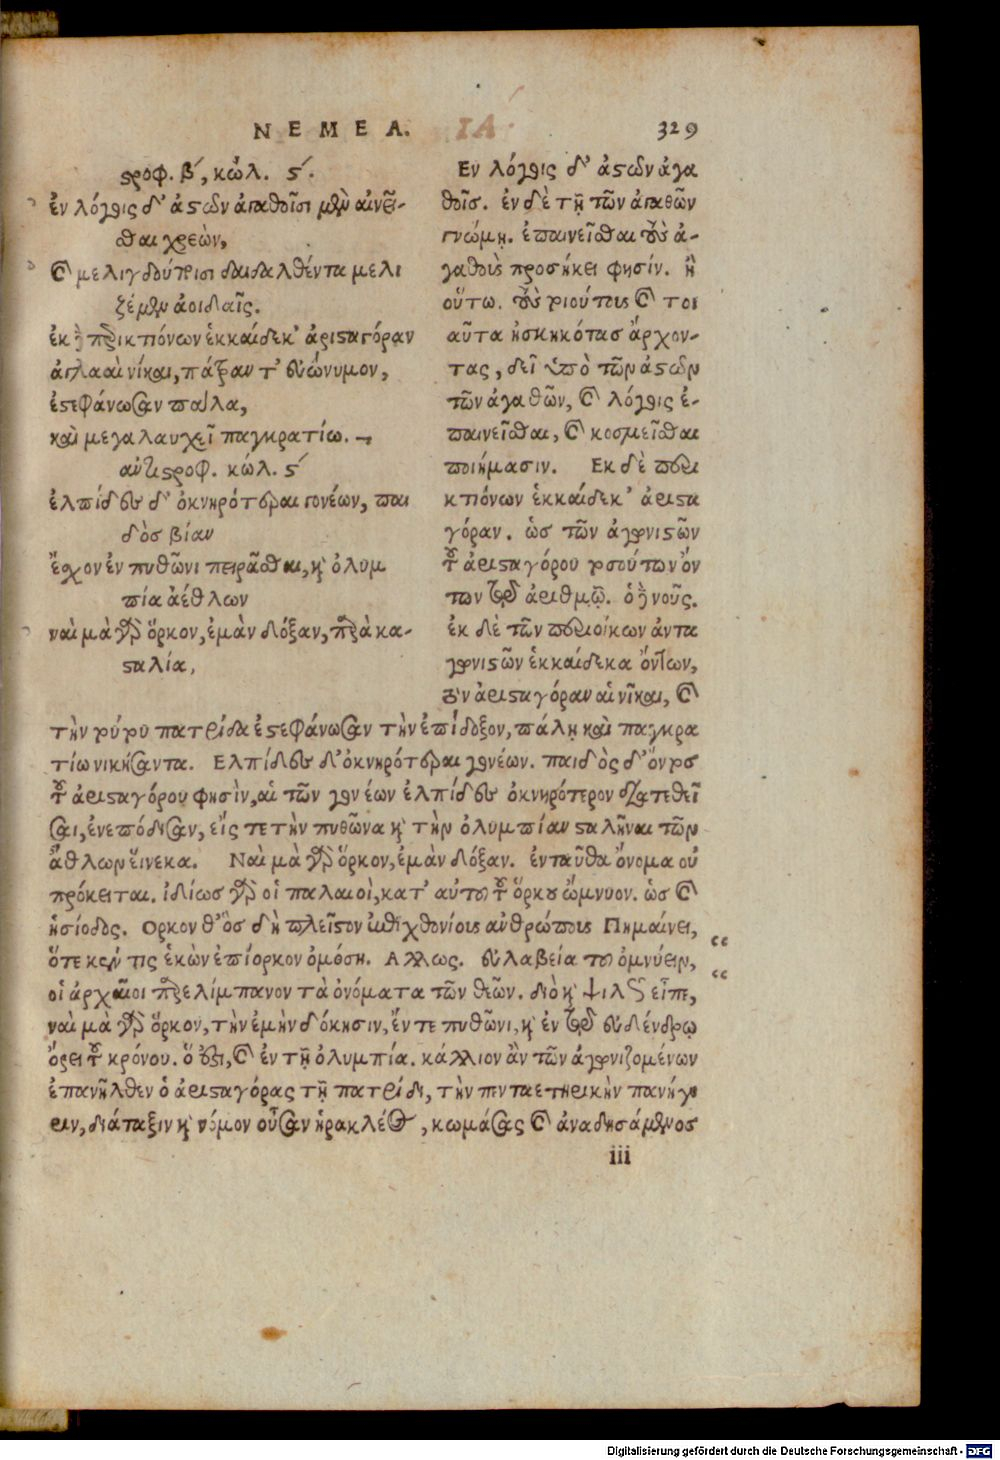 ΝΕΜΕΑ. ΙΑ. 329
στροφ. β΄, κώλ. ϛ΄.
ἐν λόγοις δ' ἀστῶν ἀγαθοῖσι μὲν αἰνεῖ-
σθαι χρεὼν,
καὶ μελιγδούποισι δαιδαλθέντα μελι
ζέμεν ἀοιδαῖς.
ἐκ δὲ περικτιόνων ἑκκαίδεκ' ἀρισταγόραν
ἀγλααὶ νίκαι, πάτραν τ' εὐώνυμον,
ἐστεφάνωσαν πάλα,
καὶ μεγαλαυχεῖ παγκρατίω.
ἀντιστροφ. κώλ. ϛ΄
ἐλπίδες δ' ὀκνηρότεραι γονέων, παι
δὸς βίαν
ἔσχον ἐν πυθῶνι πειρᾶσθαι, καὶ ὀλυμ
πία ἀέθλων
ναὶ μὰ γὰρ ὅρκον, ἐμὰν δόξαν, παρὰ κα-
σταλία,
Εν λόγοις δ' ἀστῶν ἀγα
θοῖς. ἐν δὲ τῇ τῶν ἀγαθῶν
γνώμῃ. ἐπαινεῖσθαι τοὺς ἀ-
γαθοὺς προσήκει φησίν. ἢ
οὕτω. τοὺς τοιούτους καὶ τοι
αῦτα ἠσκηκότας ἄρχον-
τας, δεῖ ὑπὸ τῶν ἀστῶν
τῶν ἀγαθῶν, καὶ λόγοις ἐ-
παινεῖσθαι, καὶ κοσμεῖσθαι
ποιήμασιν. Εκ δὲ περι
κτιόνων ἑκκαίδεκ' ἀριστα
γόραν. ὡς τῶν ἀγωνιστῶν
τοῦ ἀρισταγόρου τοσούτων ὄν
των τῷ ἀριθμῷ. ὁ δὲ νοῦς.
ἐκ δὲ τῶν περιοίκων ἀντα
γωνιστῶν ἑκκαίδεκα ὄντων,
τὸν ἀρισταγόραν αἱ νῖκαι, καὶ
τὴν τούτου πατρίδα ἐστεφάνωσαν τὴν ἐπίδοξον, πάλῃ καὶ παγκρα
τίω νικήσαντα. Ελπίδες δ' ὀκνηρότεραι γονέων. παιδὸς δ' ὄντος
τοῦ ἀρισταγόρου φησὶν, αἱ τῶν γονέων ἐλπίδες ὀκνηρότερον διατεθεῖ
σαι, ἐνεπόδισαν, εἴς τε τὴν πυθῶνα καὶ τὴν ὀλυμπίαν σταλῆναι τῶν
ἄθλων εἵνεκα. Ναὶ μὰ γὰρ ὅρκον, ἐμὰν δόξαν. ἐνταῦθα ὄνομα οὐ
πρόκειται. ἰδίως γὰρ οἱ παλαιοὶ, κατ' αὐτοῦ τοῦ ὅρκου ὤμνυον. ὡς καὶ
ἡσίοδος. Ορκον θ' ὃς δὴ πλεῖστον ἐπιχθονίους ἀνθρώπους Πημαίνει,
ὅτε κέν τις ἑκὼν ἐπίορκον ὀμόσῃ. Αλλως. εὐλαβείᾳ τοῦ ὀμνύειν,
οἱ ἀρχαῖοι παρελίμπανον τὰ ὀνόματα τῶν θεῶν. διὸ καὶ ψιλῶς εἶπε,
ναὶ μὰ γὰρ ὅρκον, τὴν ἐμὴν δόκησιν, ἔν τε πυθῶνι, καὶ ἐν τῷ εὐδένδρῳ
ὄρει τοῦ κρόνου. ὅ ἐστι, καὶ ἐν τῇ ὀλυμπίᾳ. κάλλιον ἂν τῶν ἀγωνιζομένων
ἐπανῆλθεν ὁ ἀρισταγόρας τῇ πατρίδι, τὴν πενταετηρικὴν πανήγυ
ριν, διάταξιν καὶ νόμον οὖσαν ἡρακλέος, κωμάσας καὶ ἀναδησάμενος
iii
Digitalisierung gefördert durch die Deutsche Forschungsgemeinschaft - DFG